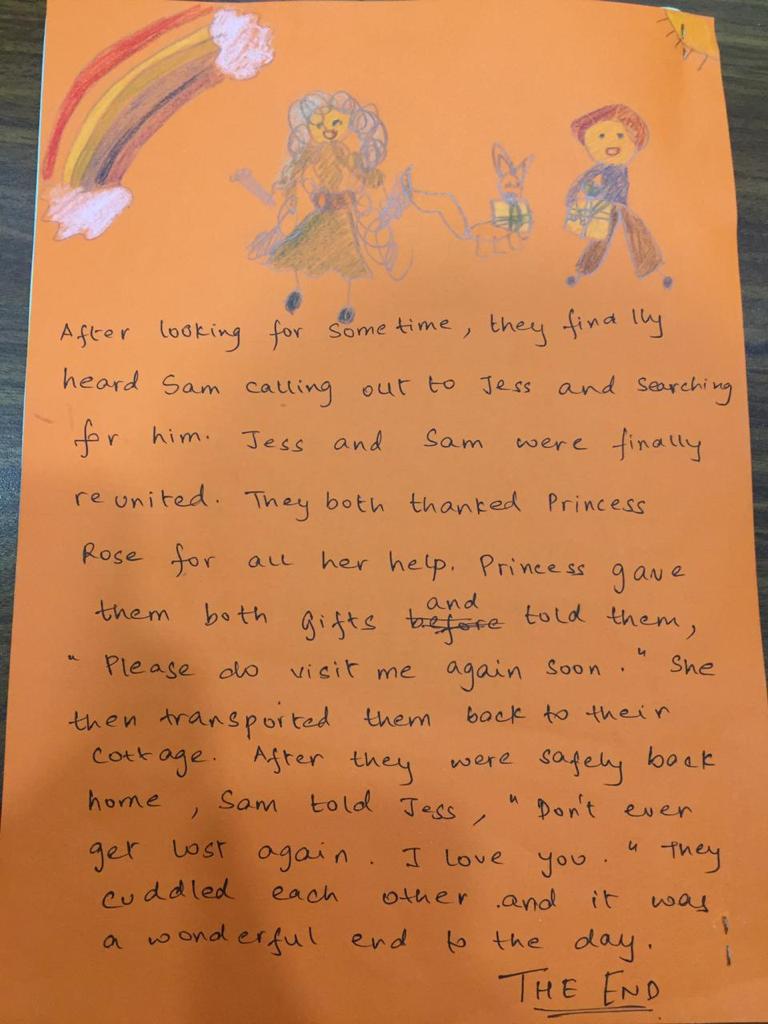 After looking for some time, they finally
heard Sam calling out to Jess and searching
for him. Jess and Sam were finally
reunited. They both thanked Princess
Rose for all her help. Princess gave
them both gifts before and told them,
"Please do visit me again soon." She
then transported them back to their
cottage. After they were safely back
home, Sam told Jess, "Don't ever
get lost again. I love you." They
cuddled each other and it was
a wonderful end to the day.
THE END